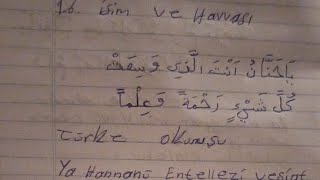 16 isim ve Havvası
يَاحَنَّانُ اَنْتَ الَّذِي وَسِعَتْ
كُلَّ شَيْءٍ رَحْمَةً وَعِلْماً
Türkçe okunuşu
Ya Hannanü Entellezi vesiat